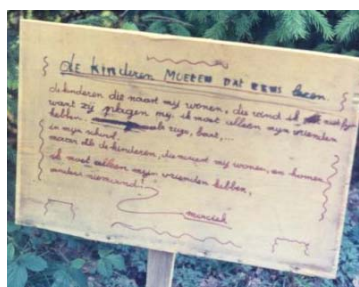 de kinderen MOETEN DAT EENS lezen.
de kinderen die naast mij wonen, die vind ik niet fijn
want zij plagen mij. ik moet alleen mijn vrienden
hebben. als regu, baat,...
in mijn school.
maar als de kinderen, die naast mij wonen, en komen,
ik moet alleen mijn vrienden hebben,
anders niemand!